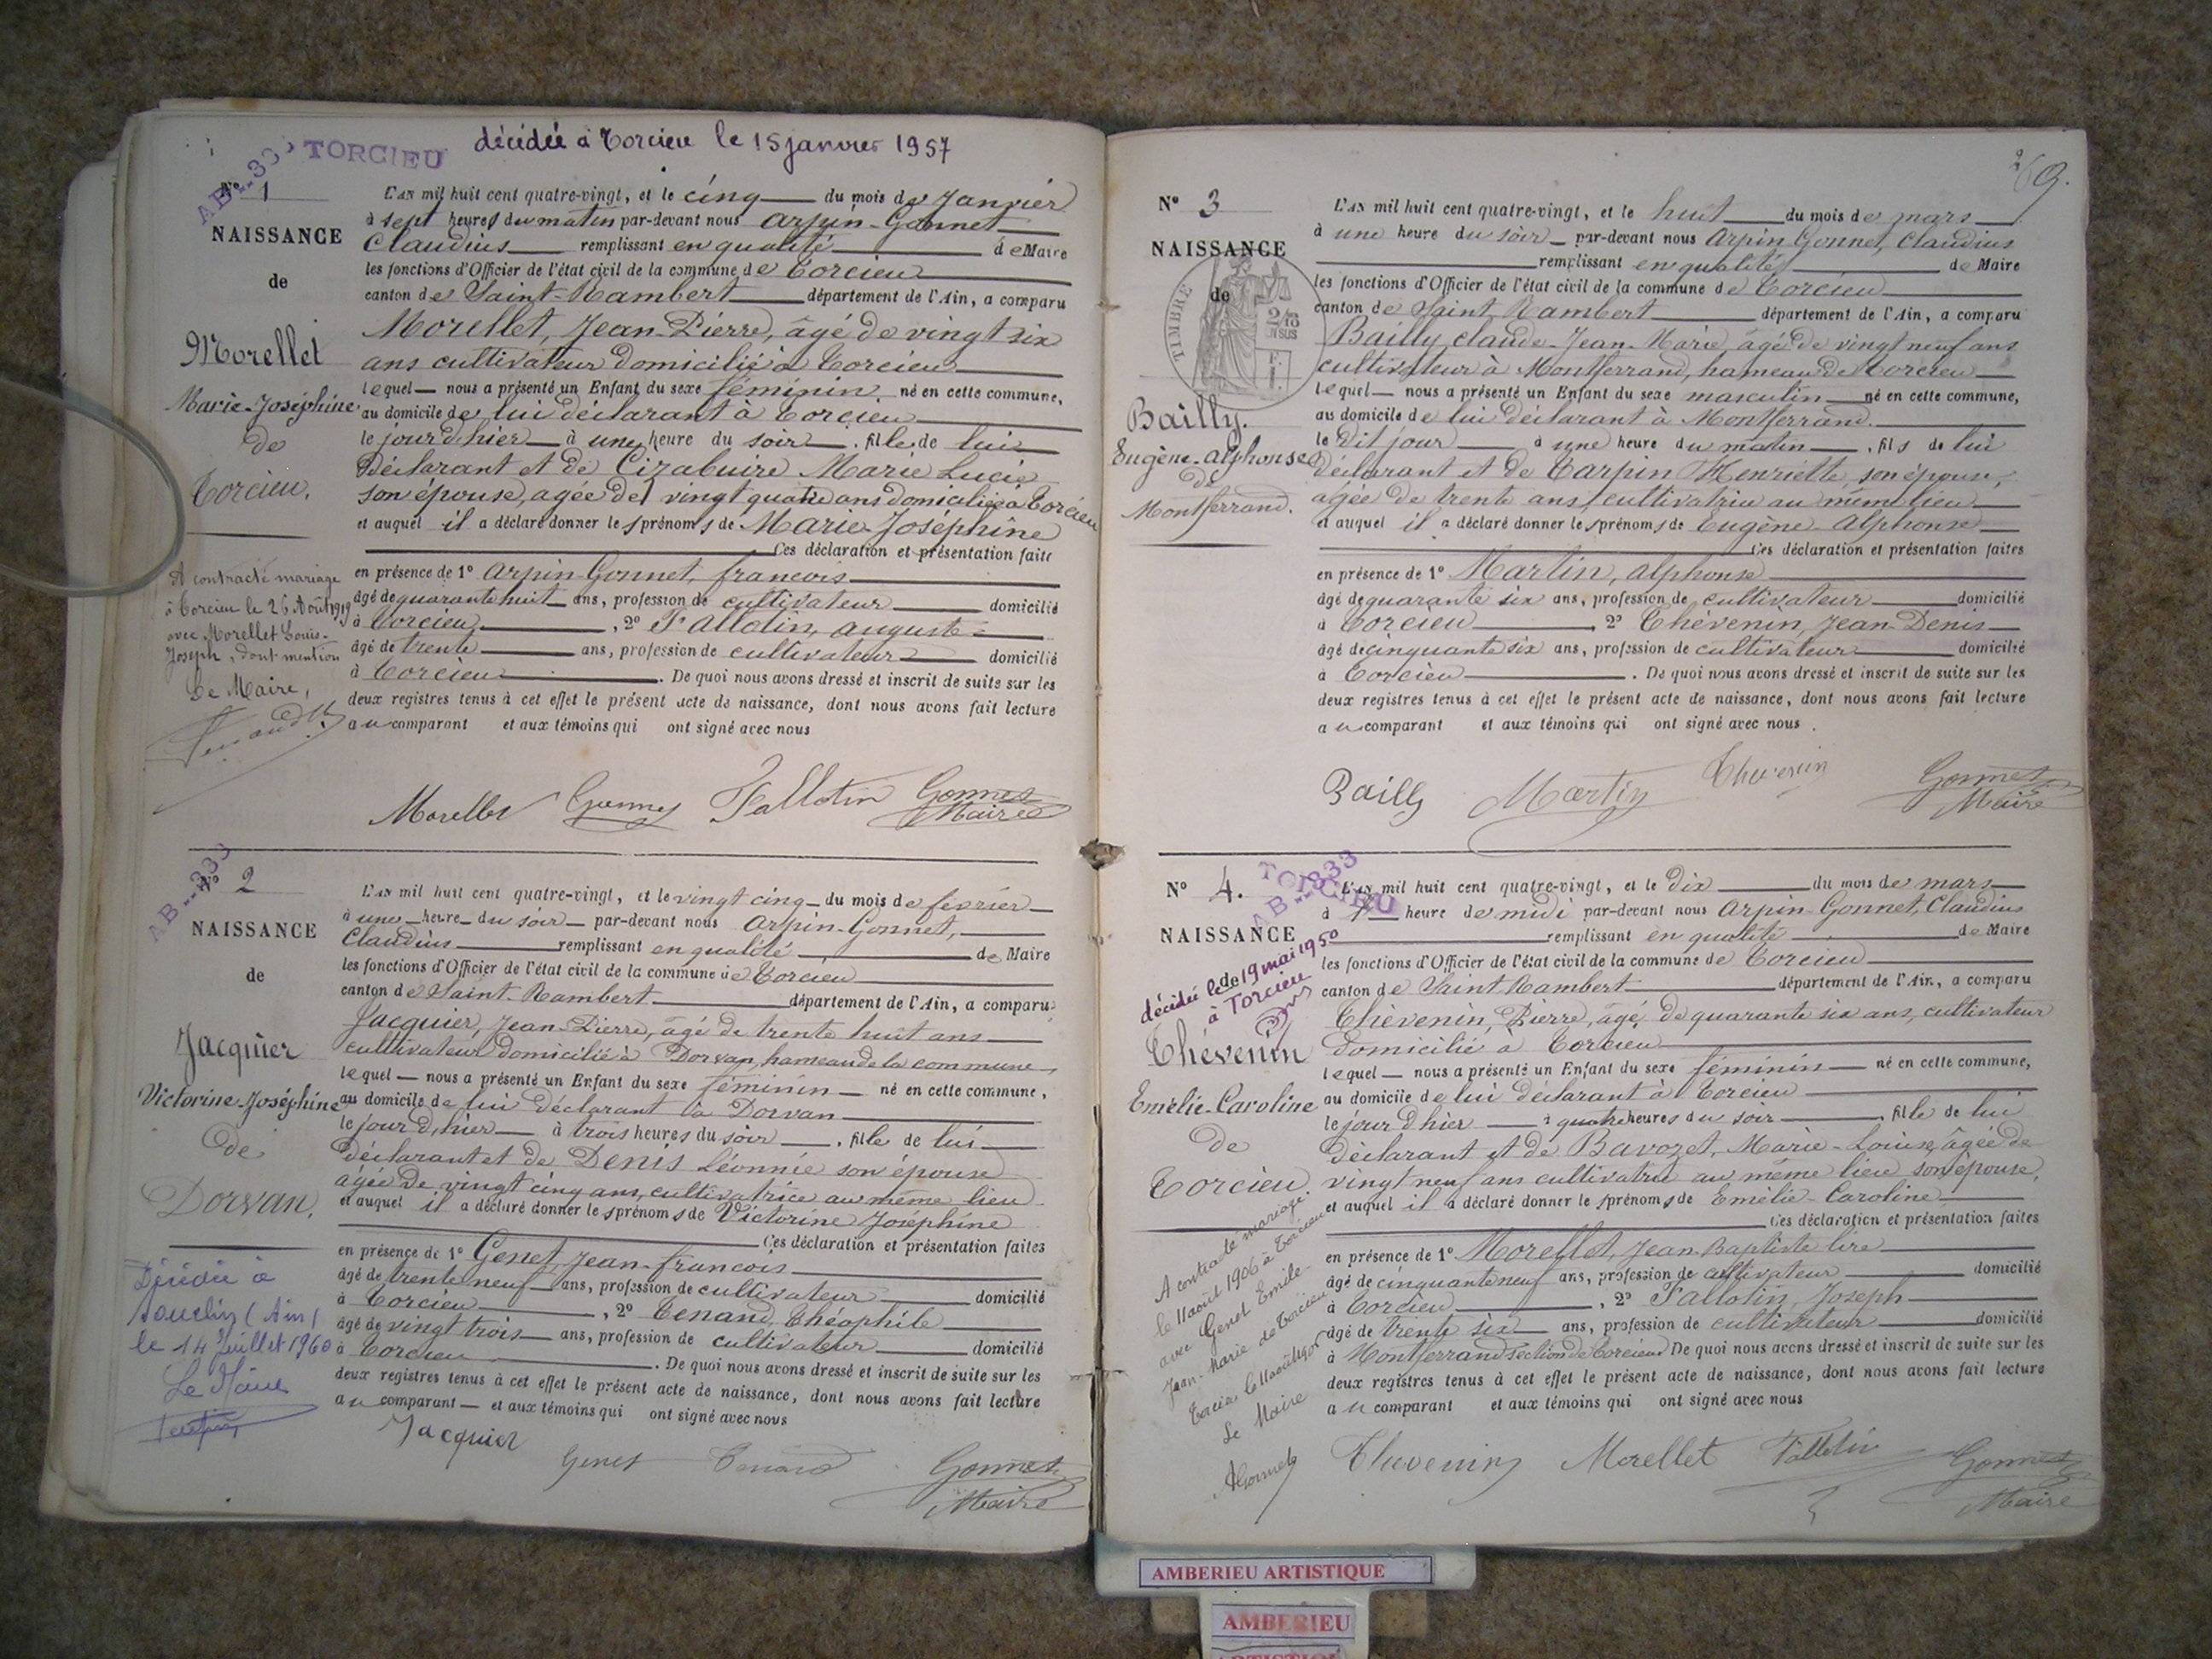 décédée à Torcieu le 15 janvier 1957
TORCIEU
AB--333
N° 1
NAISSANCE
de
Morellet
Marie-Joséphine
de
Torcieu.
A contracté mariage
à Torcieu le 26 Août 1919
avec Morellet Louis-
Joseph, dont mention
Le Maire,
L'AN mil huit cent quatre-vingt, et le cinq du mois de Janvier
à sept heures du matin par-devant nous Arpin-Gonnet
Claudius remplissant en qualité de Maire
les fonctions d'Officier de l'état civil de la commune de Torcieu
canton de Saint-Rambert département de l'Ain, a comparu
Morellet, Jean-Pierre, âgé de vingt six
ans cultivateur domicilié à Torcieu
lequel nous a présenté un Enfant du sexe féminin né en cette commune,
au domicile de lui déclarant à Torcieu
le jour d'hier à une heure du soir, fille de lui
Déclarant et de Cizabuire Marie Lucie
son épouse, agée de vingt quatre ans domiciliée à Torcieu
et auquel il a déclaré donner les prénoms de Marie-Joséphine
Ces déclaration et présentation faite
en présence de 1° Arpin-Gonnet, francois
âgé de quarante huit ans, profession de cultivateur domicilié
à Torcieu, 2° Tallotin, auguste
âgé de trente ans, profession de cultivateur domicilié
à Torcieu. De quoi nous avons dressé et inscrit de suite sur les
deux registres tenus à cet effet le présent acte de naissance, dont nous avons fait lecture
au comparant et aux témoins qui ont signé avec nous
Morellet Gonnet Tallotin Gonnet
Maire
AB--333
N° 2
NAISSANCE
de
Jacquier
Victorine-Joséphine
de
Dorvan.
Décédée à
Souclin (Ain)
le 14 Juillet 1960
Le Maire
L'AN mil huit cent quatre-vingt, et le vingt cinq du mois de février
à une heure du soir par-devant nous Arpin-Gonnet,
Claudius remplissant en qualité de Maire
les fonctions d'Officier de l'état civil de la commune de Torcieu
canton de Saint-Rambert département de l'Ain, a comparu
Jacquier, Jean-Pierre, âgé de trente huit ans
cultivateur domicilié à Dorvan, hameau de la commune,
lequel nous a présenté un Enfant du sexe féminin né en cette commune,
au domicile de lui déclarant à Dorvan
le jour d'hier à trois heures du soir, fille de lui
déclarant et de Denis Léonnie son épouse
âgée de vingt cinq ans, cultivatrice au même lieu
et auquel il a déclaré donner les prénoms de Victorine Joséphine
Ces déclaration et présentation faites
en présence de 1° Genet, Jean-francois
âgé de trente neuf ans, profession de cultivateur domicilié
à Torcieu, 2° Tenand, Théophile
âgé de vingt trois ans, profession de cultivateur domicilié
à Torcieu. De quoi nous avons dressé et inscrit de suite sur les
deux registres tenus à cet effet le présent acte de naissance, dont nous avons fait lecture
au comparant et aux témoins qui ont signé avec nous
Jacquier
Genet Tenand Gonnet
Maire
69.
N° 3
NAISSANCE
de
TIMBRE
Bailly.
Eugène-Alphonse
de
Montferrand.
L'AN mil huit cent quatre-vingt, et le huit du mois de mars
à une heure du soir par-devant nous Arpin Gonnet, Claudius
remplissant en qualité de Maire
les fonctions d'Officier de l'état civil de la commune de Torcieu
canton de Saint Rambert département de l'Ain, a comparu
Bailly, Claude-Jean-Marie, âgé de vingt neuf ans
cultivateur à Montferrand, hameau de Torcieu
lequel nous a présenté un Enfant du sexe masculin né en cette commune,
au domicile de lui déclarant à Montferrand.
le dit jour à une heure du matin, fils de lui
déclarant et de Tarpin Henriette, son épouse,
agée de trente ans, cultivatrice au même lieu
et auquel il a déclaré donner les prénoms de Eugène-Alphonse
Ces déclaration et présentation faites
en présence de 1° Martin, Alphonse
âgé de quarante six ans, profession de cultivateur domicilié
à Torcieu, 2° Thévenin, Jean-Denis
âgé de cinquante six ans, profession de cultivateur domicilié
à Torcieu. De quoi nous avons dressé et inscrit de suite sur les
deux registres tenus à cet effet le présent acte de naissance, dont nous avons fait lecture
au comparant et aux témoins qui ont signé avec nous.
Bailly Martin Thevenin Gonnet
Maire
N° 4.
NAISSANCE
décédée le 19 mai 1950
à Torcieu
Thévenin
Emélie-Caroline
de
Torcieu
A contracté mariage
le 11 août 1906 à Torcieu
avec Genet Emile-
Jean-Marie de Torcieu
Torcieu le 11 août 1906
Le Maire
AGonnet
L'AN mil huit cent quatre-vingt, et le dix du mois de mars
à heure de midi par-devant nous Arpin-Gonnet, Claudius
remplissant en qualité de Maire
les fonctions d'Officier de l'état civil de la commune de Torcieu
canton de Saint Rambert département de l'Ain, a comparu
Thévenin, Pierre, âgé de quarante six ans, cultivateur
domicilié à Torcieu
lequel nous a présenté un Enfant du sexe féminin né en cette commune,
au domicile de lui déclarant à Torcieu
le jour d'hier à quatre heures du soir, fille de lui
déclarant et de Bavozet, Marie-Louise, âgée de
vingt neuf ans cultivatrice au même lieu son épouse,
et auquel il a déclaré donner les prénoms de Emélie-Caroline
Ces déclaration et présentation faites
en présence de 1° Morellet, Jean-Baptiste
âgé de cinquante neuf ans, profession de cultivateur domicilié
à Torcieu, 2° Tallotin, Joseph
âgé de trente six ans, profession de cultivateur domicilié
à Montferrand section de Torcieu De quoi nous avons dressé et inscrit de suite sur les
deux registres tenus à cet effet le présent acte de naissance, dont nous avons fait lecture
au comparant et aux témoins qui ont signé avec nous
Thevenin Morellet Tallotin Gonnet
Maire
AMBERIEU ARTISTIQUE
AMBERIEU